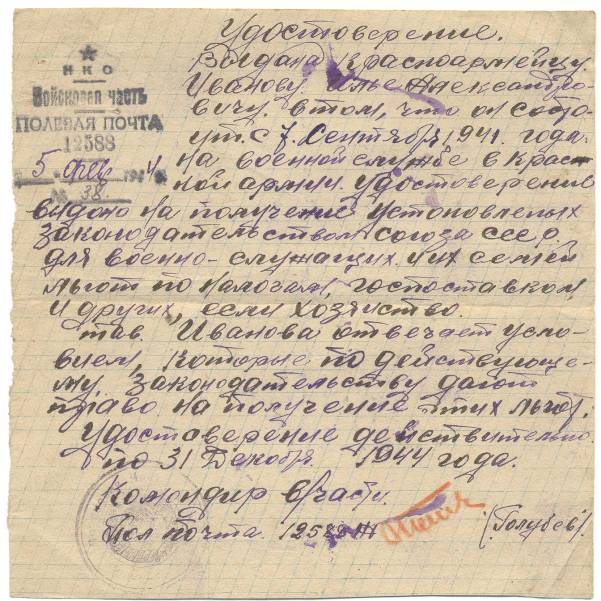 Удостоверение.
НКО
Войсковая часть
ПОЛЕВАЯ ПОЧТА
12588
5 фев 1944
№ 38
Выдана Красноармейцу
Иванову Илье Александро-
вичу. в том, что он состо-
ит. с 7. Сентября 1941. года.
на военной службе в Крас-
ной армии. Удостоверение
выдано на получение установленых
законодательством союза ССР.
для военно-служащих. и их семей
льгот по налогам, госпоставком,
и других, если хозяйство.
тов. Иванова отвечает усло-
вием, которые по действующе-
му, законодательству дают
право на получение этих льгот.
Удостоверение действительно.
по 31 Декабря. 1944 года.
Командир в/части.
Пол почта. 12588
(Голубев).